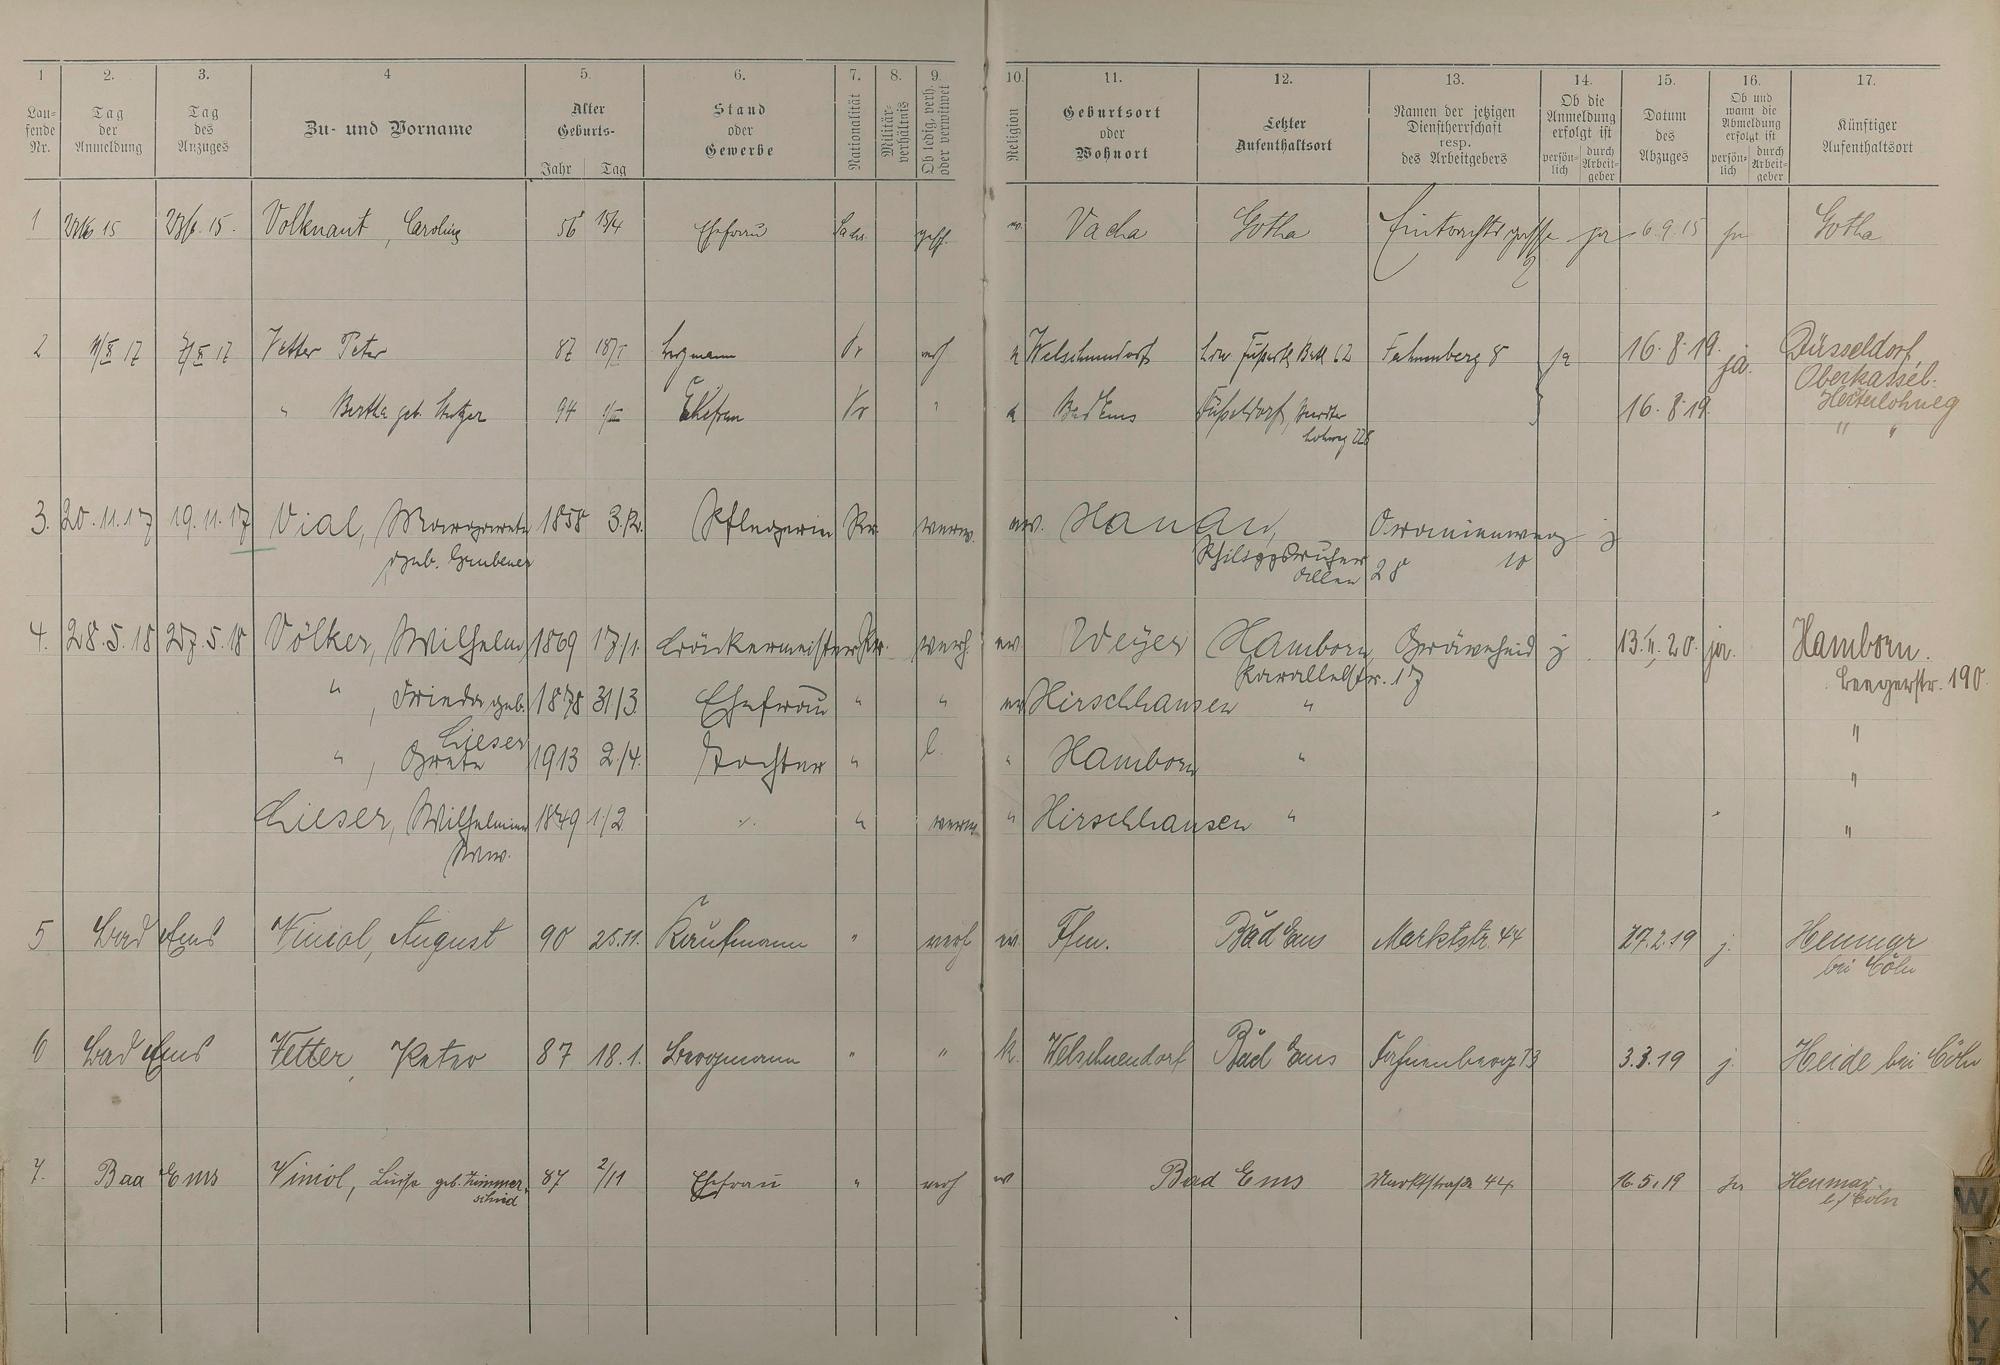 1 2. 3. 4 5. 6. 7. 8. 9. 10. 11. 12. 13. 14. 15. 16. 17.
Lau-fende Nr. Tag der Anmeldung Tag des Anzuges Zu- und Vorname Alter Geburts- Jahr Tag Stand oder Gewerbe Nationalität Militär-verhältnis Ob ledig, verh. oder verwitwet Religion Geburtsort oder Wohnort Letzter Aufenthaltsort Namen der jetzigen Dienstherrschaft resp. des Arbeitgebers Ob die Anmeldung erfolgt ist persön-lich durch Arbeit-geber Datum des Abzuges Ob und wann die Abmeldung erfolgt ist persön-lich durch Arbeit-geber Künftiger Aufenthaltsort
1 Volknant, Caroline 56 15/4 Ehefrau Sachs. gesch. ev. Vacha Gotha Eintrachtsgasse ja 6.9.15 ja Gotha
2
2 17 17 Vetter Peter 87 18/I Bergmann Pr verh k Welschneudorf 62 Fahnenberg 8 ja 16.8.19. ja. Düsseldorf,
Oberkassel.
" Bertha geb. 94 Ehefrau Pr " k Bad Ems Düsseldorf, 16.8.19.
228 " "
3. 20.11.17 19.11.17 Vial, Margarete 1858 3./12. Pflegerin Pr. verw. ev. Hanau, Oranienweg j
geb. Philippsruher Allee 28 10
4. 28.5.18 27.5.18 Völker, Wilhelm 1869 17/1. Brückermeister Pr. verh. ev Weyer Hamborn Gräveneid j 13.II.20. ja. Hamborn.
Parallelstr. 17 Beegerstr. 190.
" , Frieda geb. 1878 31/3 Ehefrau " " ev Hirschhausen "
Lieser "
" , Grete 1913 2./4. Tochter " l. " Hamborn " "
Lieser, Wilhelmine 1849 1/2 " verw. " Hirschhausen " "
Wwe.
5 Bad Ems Viniol, August 90 25.11. Kaufmann " verh ev. Ffm. Bad Ems Marktstr. 44 27.2.19 j. Heumar
bei Cöln
6 Bad Ems Vetter, Peter 87 18.1. Bergmann " " k. Welschneudorf Bad Ems Fahnenberg 13 3.3.19 j. Heide bei Cöln
7. Bad Ems Viniol, Luise geb. Zimmer- 87 2/11 Ehefrau " verh ev Bad Ems Marktstraße 44 16.5.19 ja Heumar
schied b/ Cöln
W
X
Y